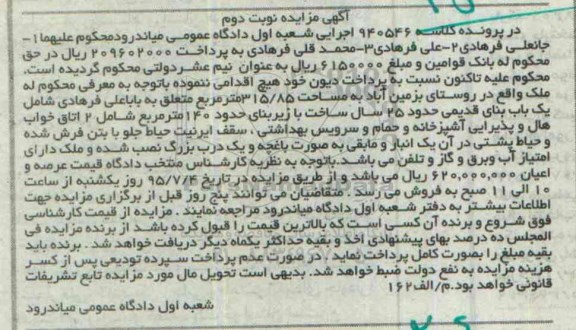 آگهی مزایده نوبت دوم
در پرونده کلاسه ۹۴۰۵۴۶ اجرایی شعبه اول دادگاه عمومی میاندرودمحکوم علیهما۱-
جانعلی فرهادی۲-علی فرهادی۳-محمد قلی فرهادی به پرداخت ۲۰۹۶۰۲۰۰۰ ریال در حق
محکوم له بانک قوامین و مبلغ ۶۱۵۰۰۰۰ ریال به عنوان نیم عشردولتی محکوم گردیده است.
محکوم علیه تاکنون نسبت به پرداخت دیون خود هیچ اقدامی ننموده باتوجه به معرفی محکوم له
ملک واقع در روستای بزمین آباد به مساحت ۳۱۵/۸۵مترمربع متعلق به باباعلی فرهادی شامل
یک باب بنای قدیمی حدود ۲۵ سال ساخت با زیربنای حدود ۱۴۰مترمربع شامل ۲ اتاق خواب
هال و پذیرایی آشپزخانه و حمام و سرویس بهداشتی ، سقف ایرنیت حیاط جلو با بتن فرش شده
و حیاط پشتی در آن یک انبار و مابقی به صورت باغچه و یک درب بزرگ نصب شده و ملک دارای
امتیاز آب وبرق و گاز و تلفن می باشد.باتوجه به نظریه کارشناس منتخب دادگاه قیمت عرصه و
اعیان ۶۲۰,۰۰۰,۰۰۰ ریال می باشد و از طریق مزایده در تاریخ ۹۵/۷/۴ روز یکشنبه از ساعت
۱۰ الی ۱۱ صبح به فروش می رسد. متقاضیان می توانند پنج روز قبل از برگزاری مزایده جهت
اطلاعات بیشتر به دفتر شعبه اول دادگاه میاندرود مراجعه نمایند . مزایده از قیمت کارشناسی
فوق شروع و برنده آن کسی است که بالاترین قیمت را قبول کرده باشد از برنده مزایده فی
المجلس ده درصد بهای پیشنهادی اخذ و بقیه حداکثر یکماه دیگر دریافت خواهد شد . برنده باید
بقیه مبلغ را بصورت کامل پرداخت نماید . در صورت عدم پرداخت سپرده تودیعی پس از کسر
هزینه مزایده به نفع دولت ضبط خواهد شد. بدیهی است تحویل مال مورد مزایده تابع تشریفات
قانونی خواهد بود.م/الف۱۶۲
شعبه اول دادگاه عمومی میاندرود